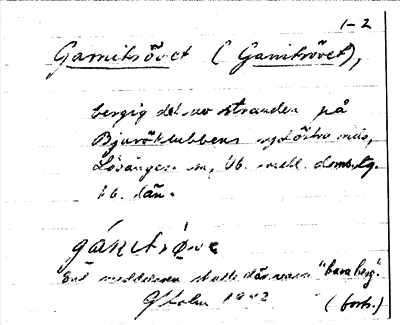 1-2
Garnitsövet (Ganitsövet),
bergig del av stranden på
Bjuröklubbens sydöstra näs,
Lövångers sn, Vb. mell. domsg.
Vb. län.
Enl meddelaren skulle där vara "bara berg".
(forts.)